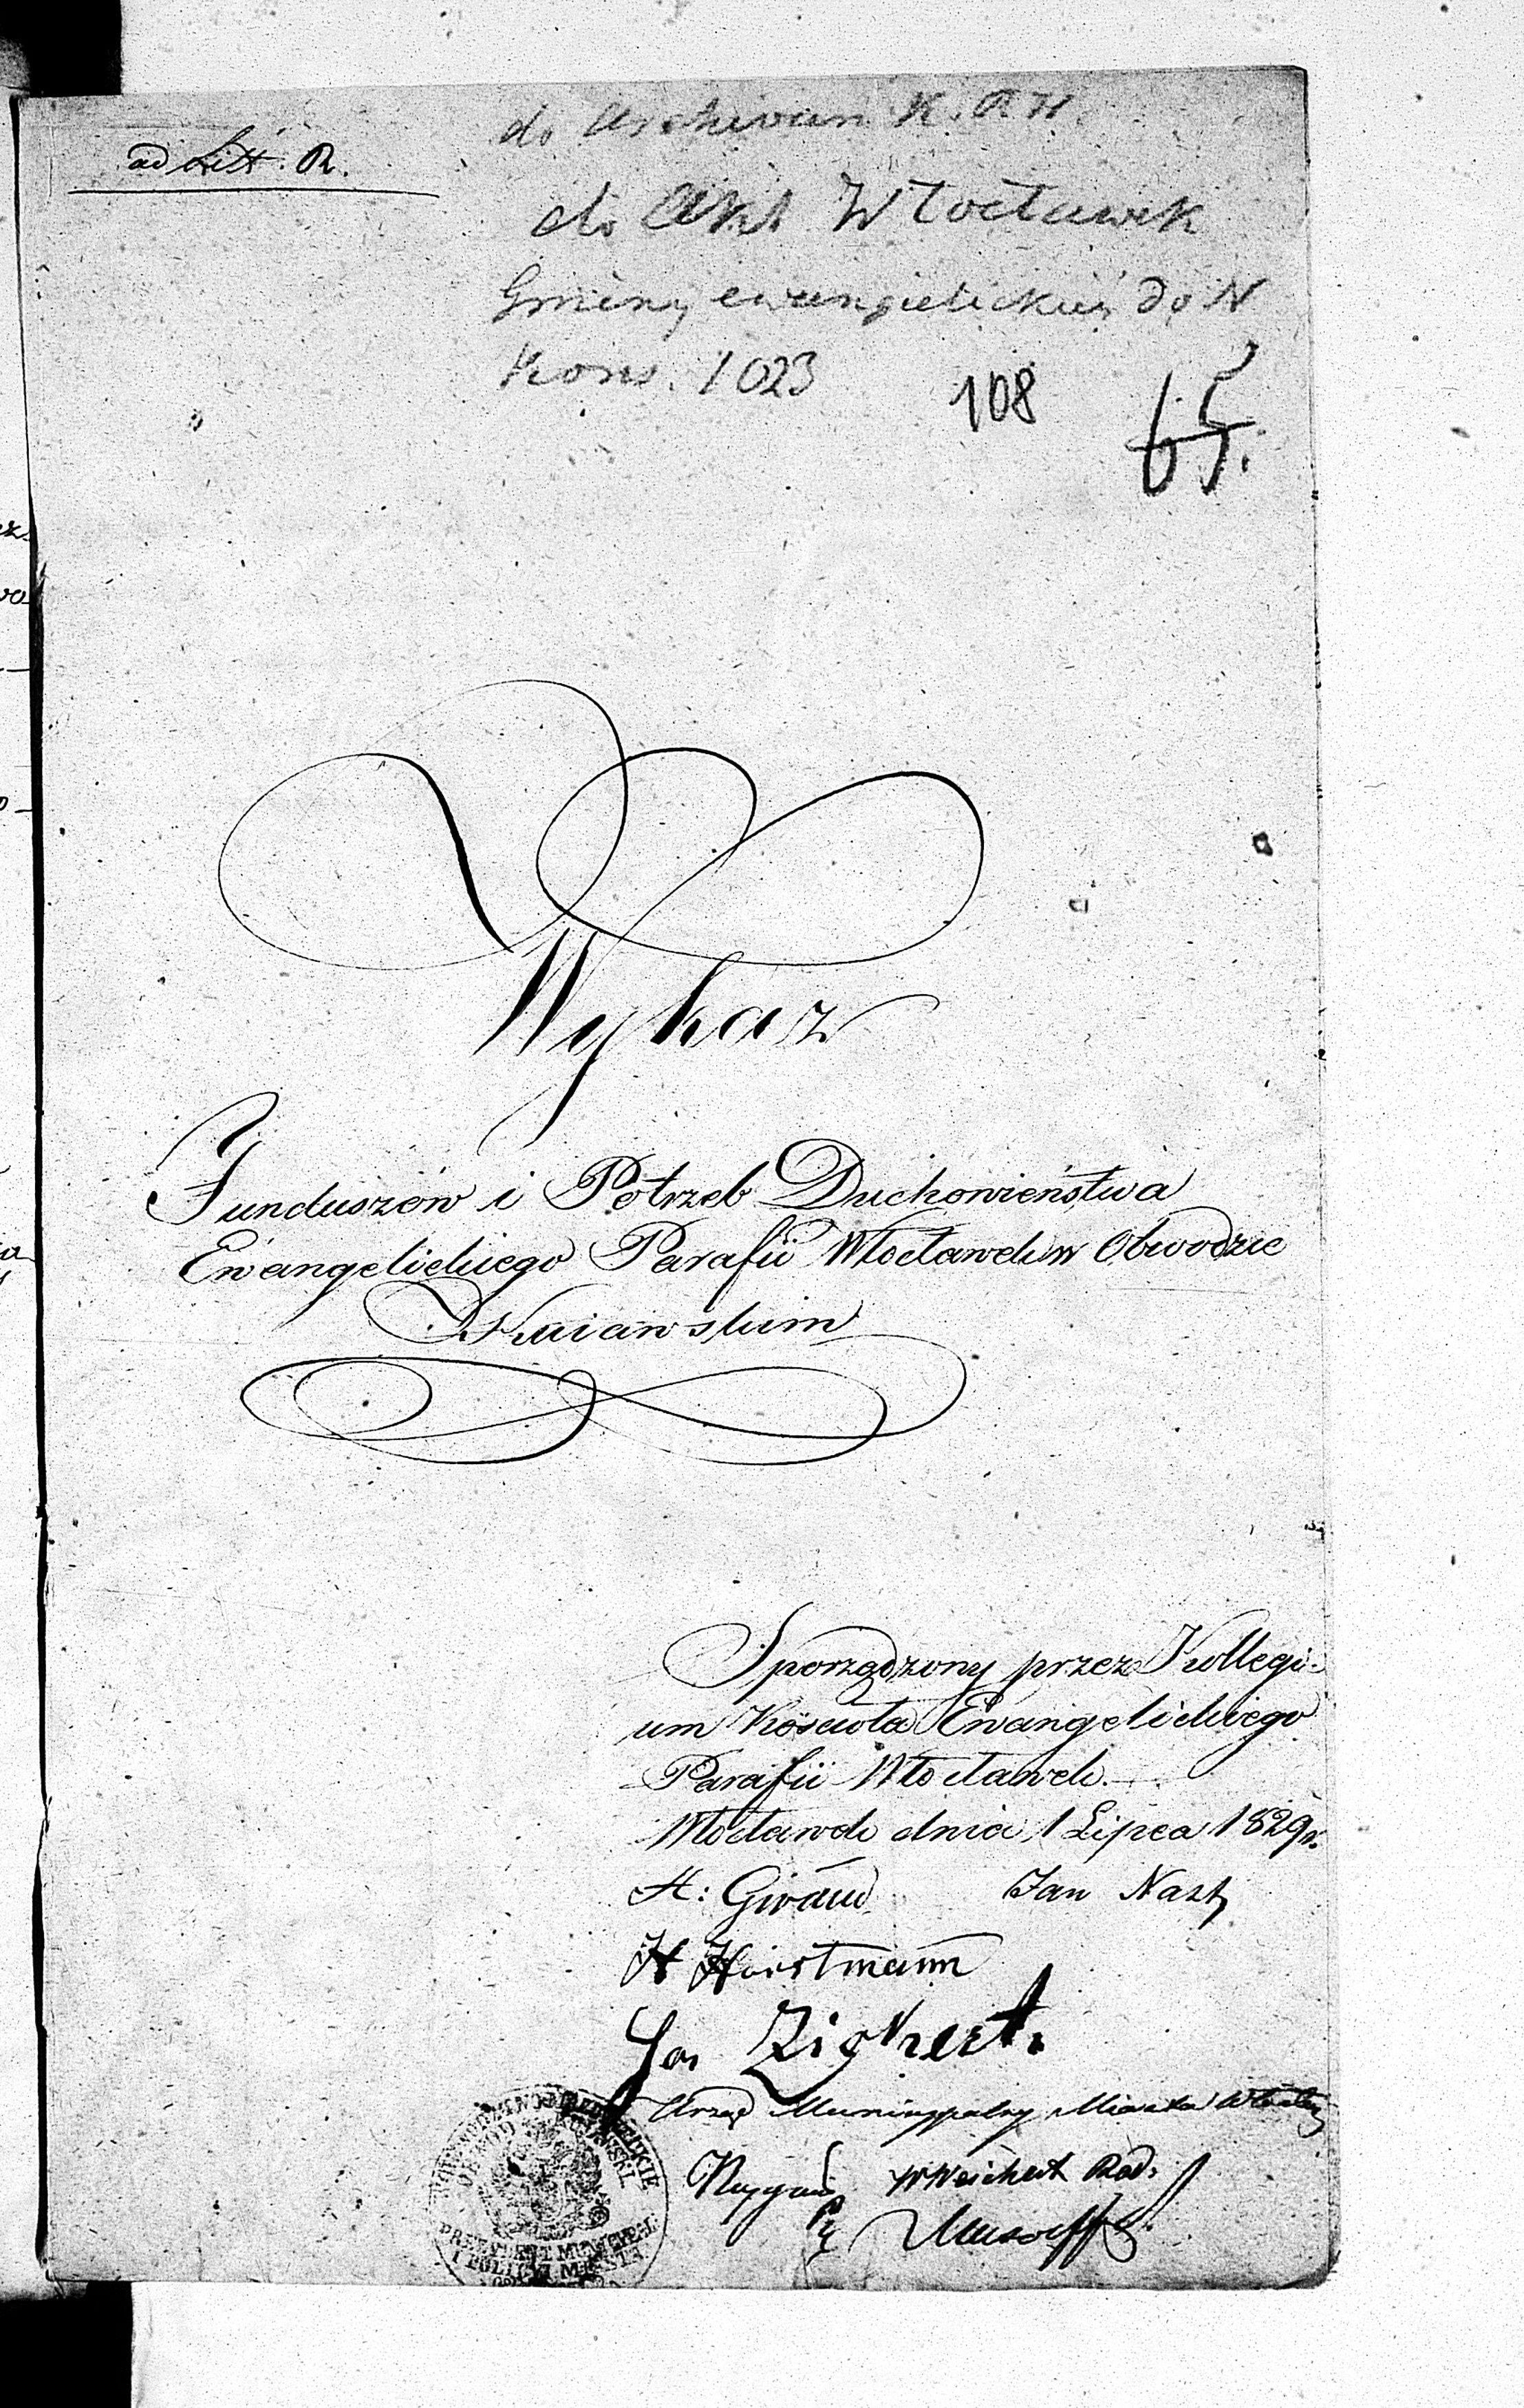 ad Litt. R.
do Archivum K. R. W.
do Akt Włocławek
Gminy ewangielickiej do N
Kons. 1023
108
65.
Wykaz
Funduszów i Potrzeb Duchowieństwa
Ewangelickiego Parafii Włocławek w Obwodzie
Kuiawskim
Sporządzony przez Kollegi-
um Kościoła Ewangelickiego
Parafii Włocławek.
Włocławek dnia 1 Lipca 1829 r.
H: Giraud Jan Nast
H Horstmann
Zigkert.
Urząd Municypalny Miasta
W Weichert Rad.
OBWÓD KUJAWSKI
PREZYDENT MUNICYPAL:
I POLICYI MIASTA